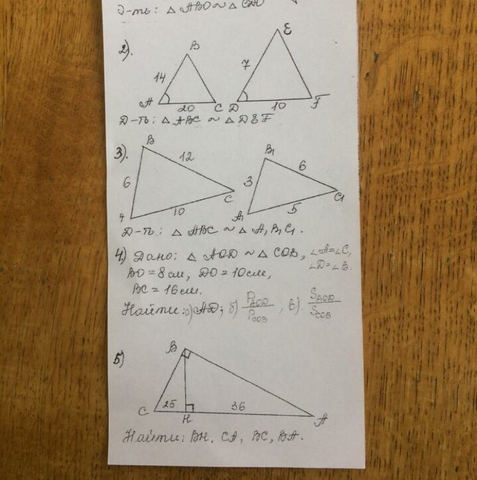 Д-ть: △ ABO ~ △
2).
B
E
14
7
A
20
C
D
10
F
Д-ть: △ ABC ~ △ DEF
3).
B
12
B₁
6
6
3
C
C₁
10
A₁
5
Д-ть: △ ABC ~ △ A₁B₁C₁.
4) Дано: △ AOD ~ △ COB, ∠A=∠C,
BO = 8см, DO = 10см, ∠D=∠B.
BC = 16см.
Найти: а) AD, б) P_AOD / P_COB, в). S_AOD / S_COB
5)
B
C
25
H
36
A
Найти: BH, CA, BC, BA.